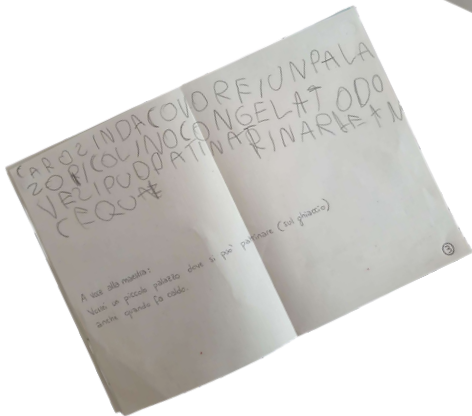 CAROZINDACOVOREIUNPALA
ZOPICOLINOCONGELATODO
VEZIPUOPATINAR
CEQUA
A voce alla maestra:
Vorrei un piccolo palazzo dove si può pattinare (sul ghiaccio)
anche quando fa caldo.
3